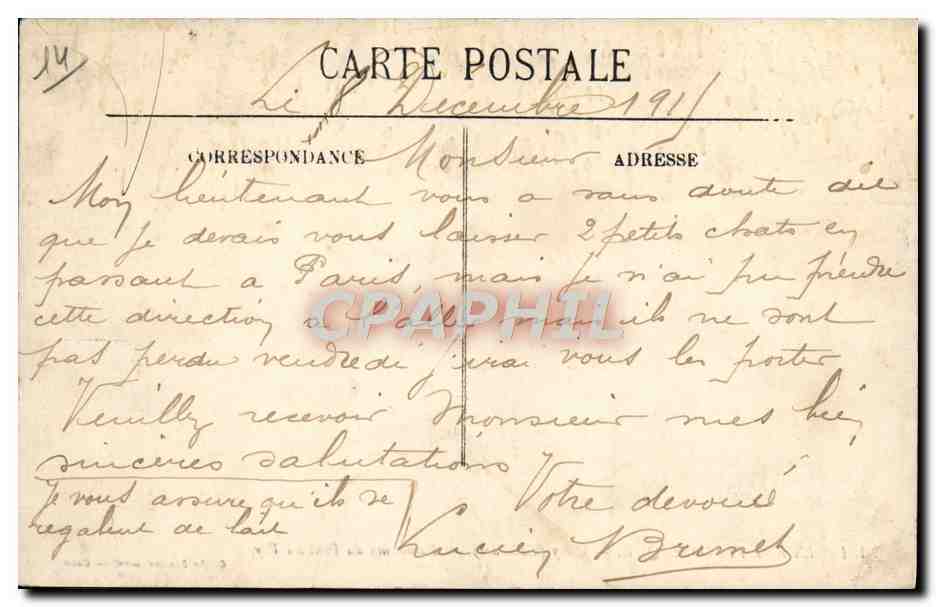 14
CARTE POSTALE
Le 8 Decembre 191
CORRESPONDANCE Monsieur ADRESSE
Mon lieutenant vous a sans doute dit
que je devais vous laisser 2 petits chats en
passant a Paris, mais je n'ai pu prendre
cette direction a l'aller mais ils ne sont
pas perdu vendredi j'irai vous les porter
Veuillez recevoir Monsieur mes bien
sincères salutations
Votre devoué
Je vous assure qu'ils se
regalent de lait
Lucien Brunet
CPAPHIL